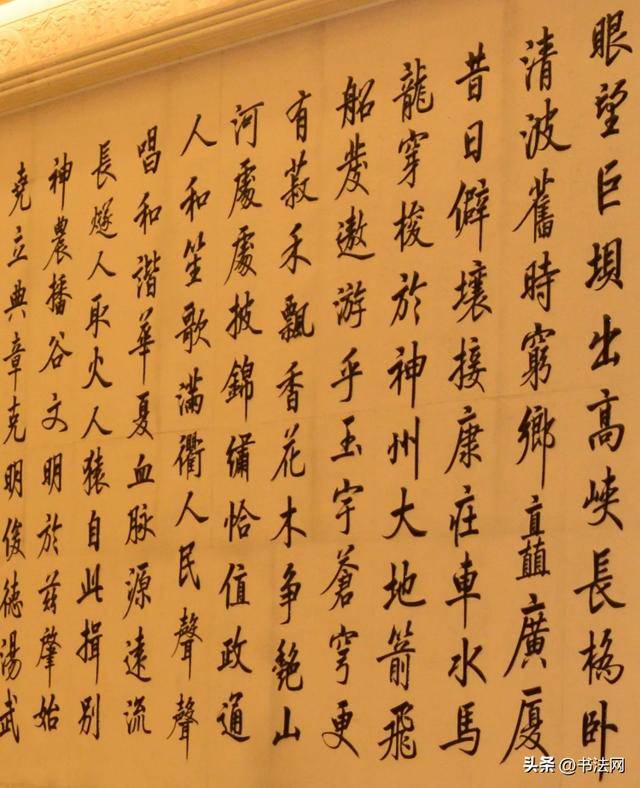 眼望巨垻出高峡長橋卧
清波舊時窮鄉矗廣厦
昔日僻壤接康庄車水馬
龍穿梭於神州大地箭飛
船發遨游乎玉宇蒼穹更
有菽禾飄香花木争艷山
河處處披錦繡恰值政通
人和笙歌滿衢人民聲聲
唱和諧華夏血脉源遠流
長燧人取火人猿自此揖别
神農播谷文明於兹肇始
堯立典章克明俊德湯武
头条 @书法网